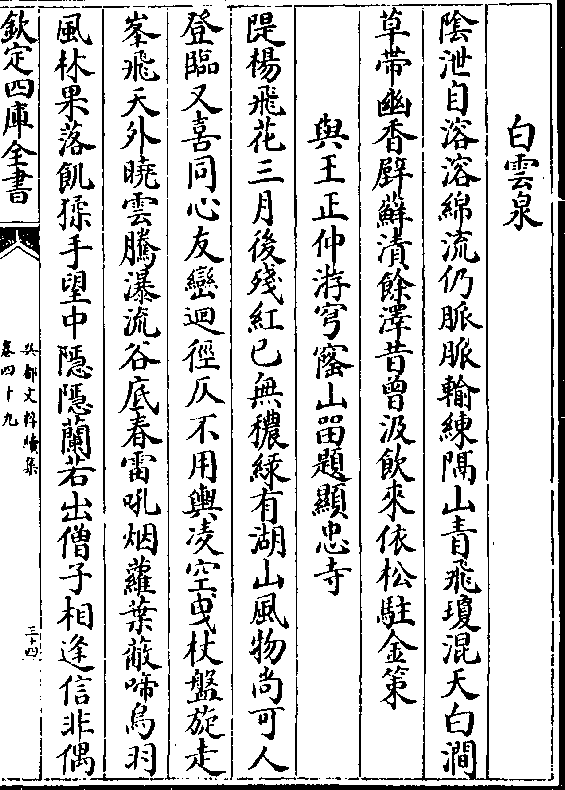 白雲泉
陰泄自溶溶綿流仍脈脈輸練隔山青飛瓊混天白澗
草帯幽香壁蘚漬餘澤昔曾汲飲來依松駐金策
與王正仲游穹窿山留題顯忠寺
隄楊飛花三月後殘紅已無穠緑有湖山風物尚可人
登臨又喜同心友巒迴徑仄不用輿凌空曳杖盤旋走
峯飛天外曉雲騰瀑流谷底春雷吼烟蘿葉蔽啼鳥羽
風林果落飢猱手望中隠隠蘭若出僧子相逢信非偶
欽定四庫全書
吳都文粹續集
卷四十九
三十四